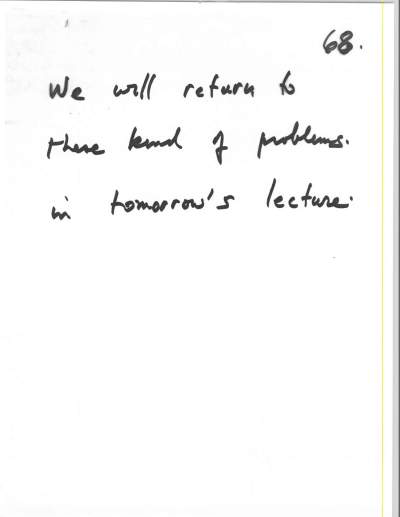 68.
We will return to
these kind of problems.
in tomorrow's lecture.